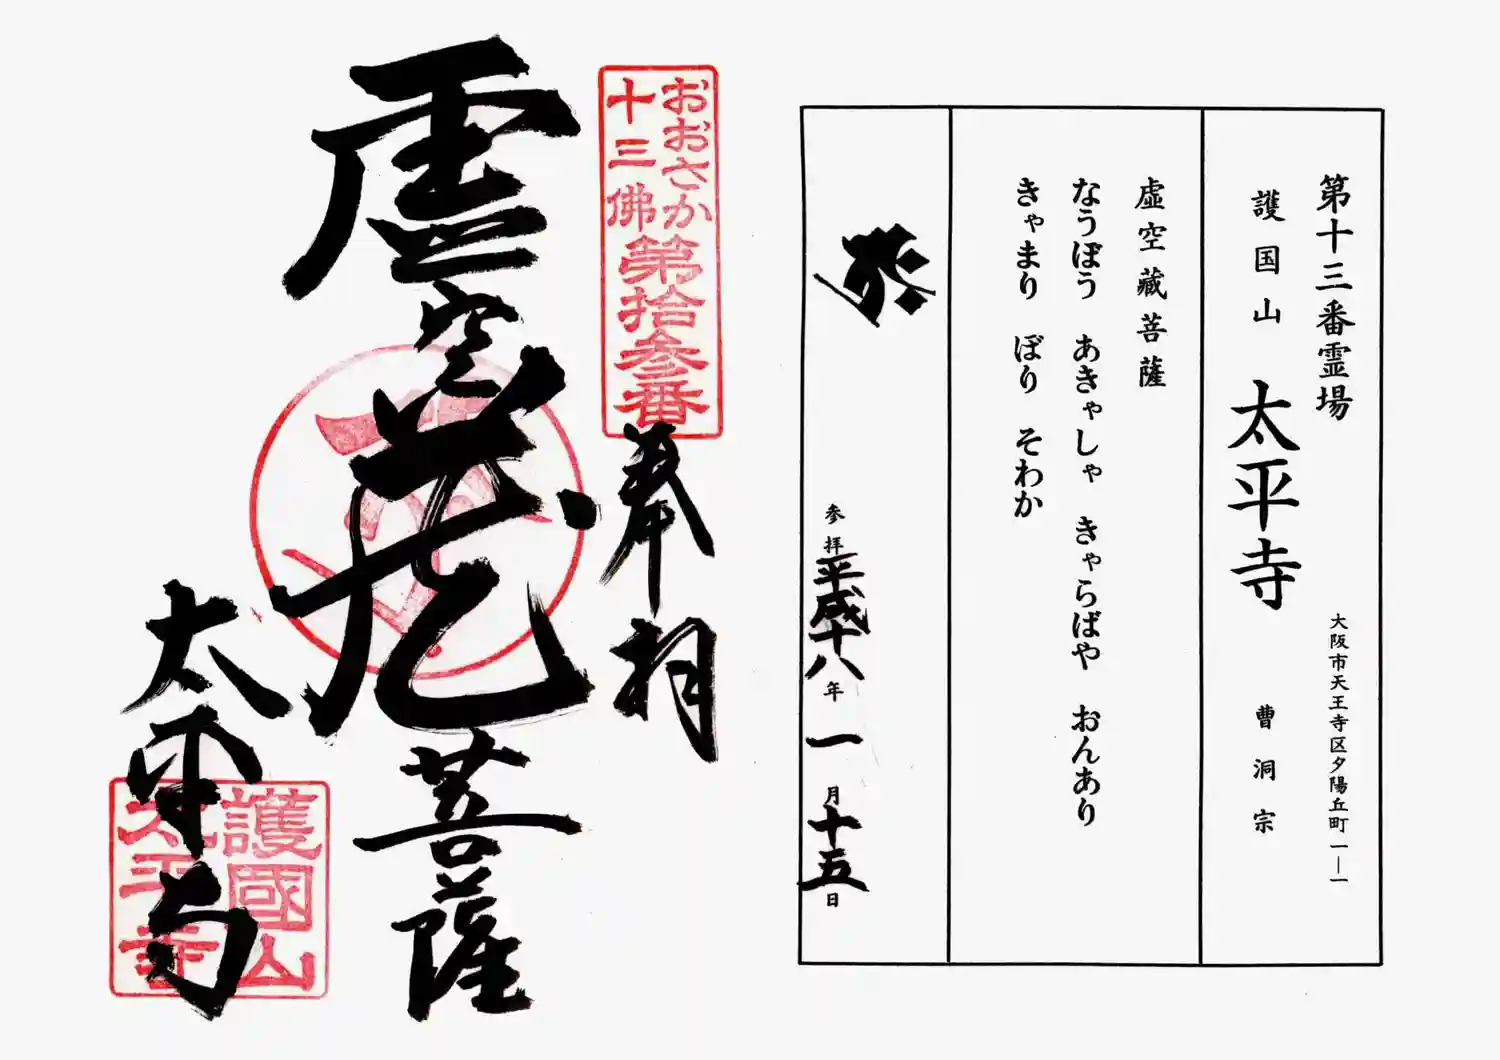 第十三番霊場
大阪市天王寺区夕陽丘町一―一
護国山 太平寺 曹洞宗
虚空藏菩薩
なうぼう あきゃしゃ きゃらばや おんあり
きゃまり ぼり そわか
参拝平成十八年一月十五日
おおさか
十三佛
第拾参番
奉拝
虚空蔵菩薩
太平寺
護國山
太平寺